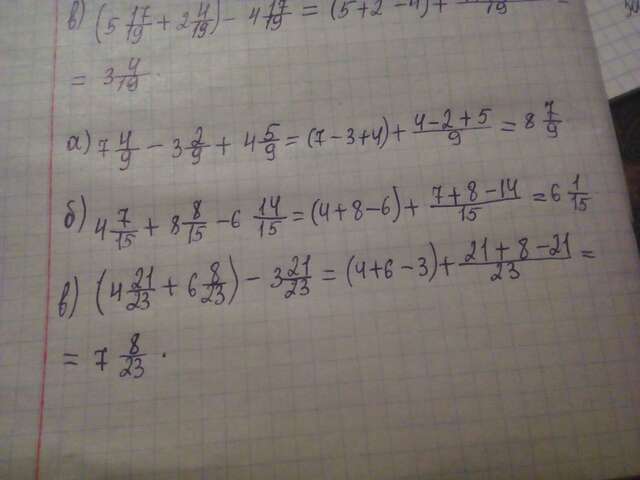 в) (5 17/19 + 2 4/19) - 4 17/19 = (5+2-4) + /19 =
= 3 4/19.
а) 7 4/9 - 3 2/9 + 4 5/9 = (7-3+4) + 4-2+5/9 = 8 7/9
б) 4 7/15 + 8 8/15 - 6 14/15 = (4+8-6) + 7+8-14/15 = 6 1/15
в) (4 21/23 + 6 8/23) - 3 21/23 = (4+6-3) + 21+8-21/23 =
= 7 8/23.